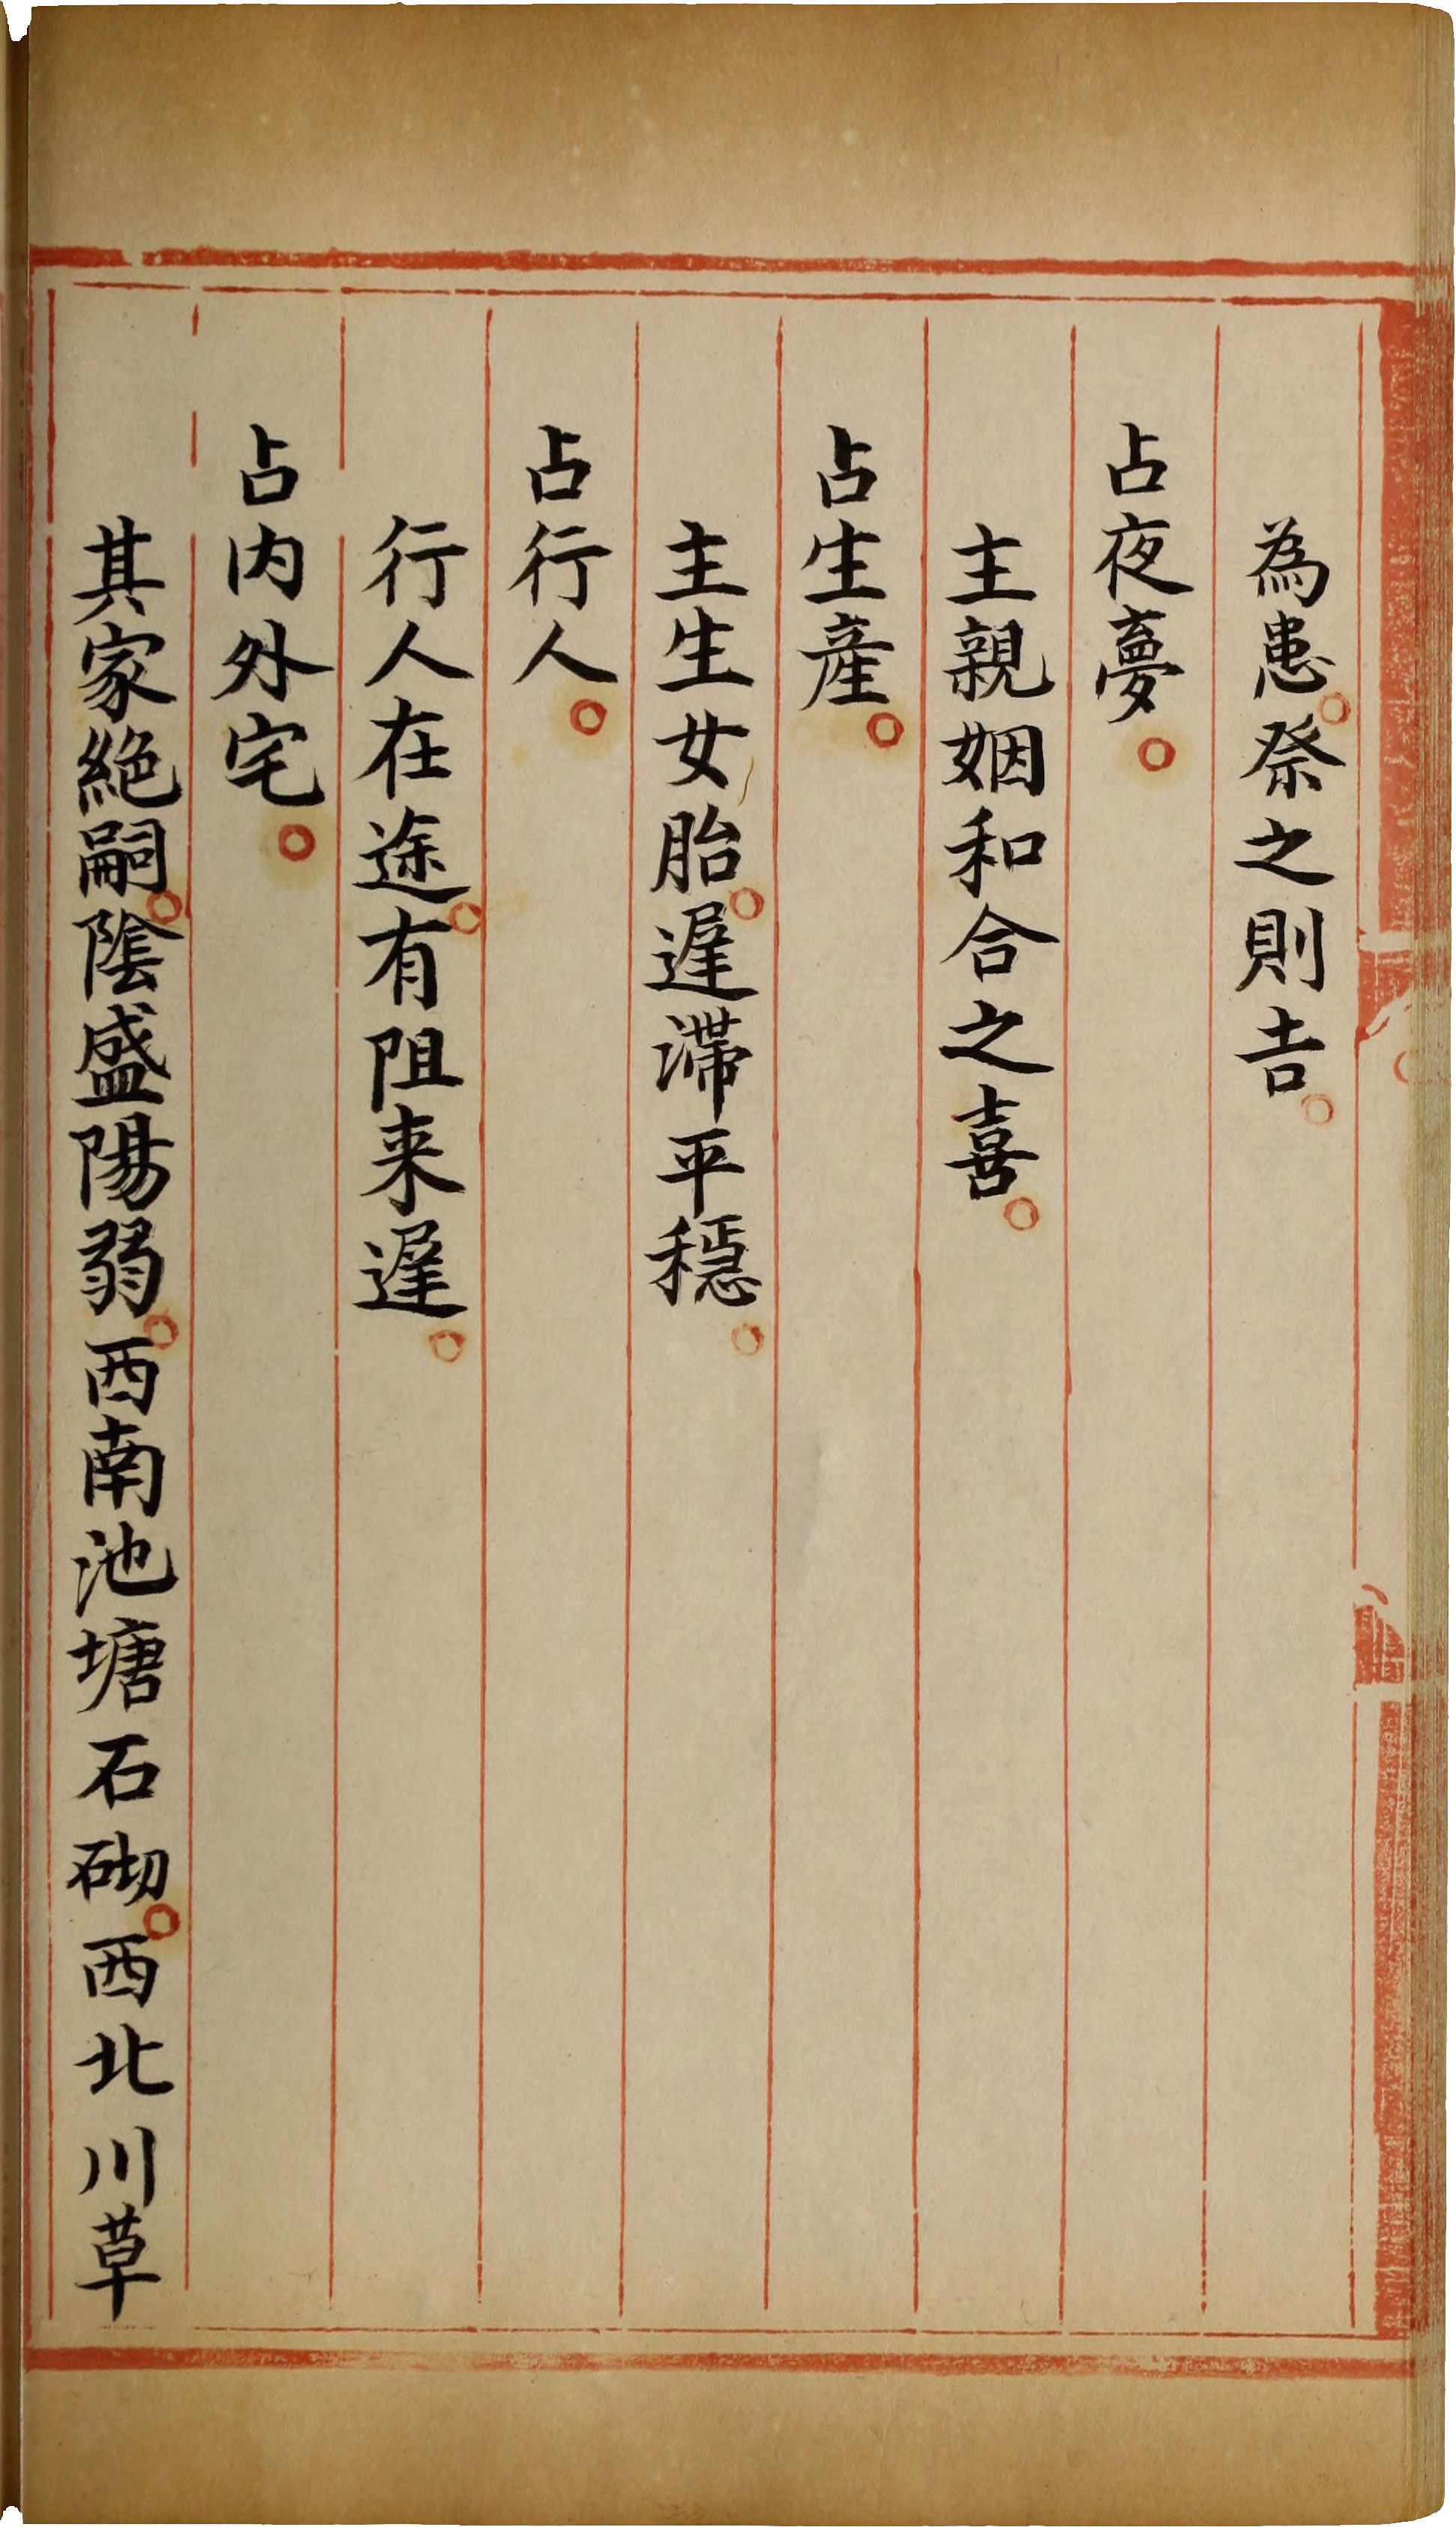 為患。祭之則吉。
占夜夢。
主親姻和合之喜。
占生産。
主生女胎。遲滯平穩。
占行人。
行人在途。有阻来遲。
占内外宅。
其家絶嗣。陰盛陽弱。西南池塘石砌。西北川草